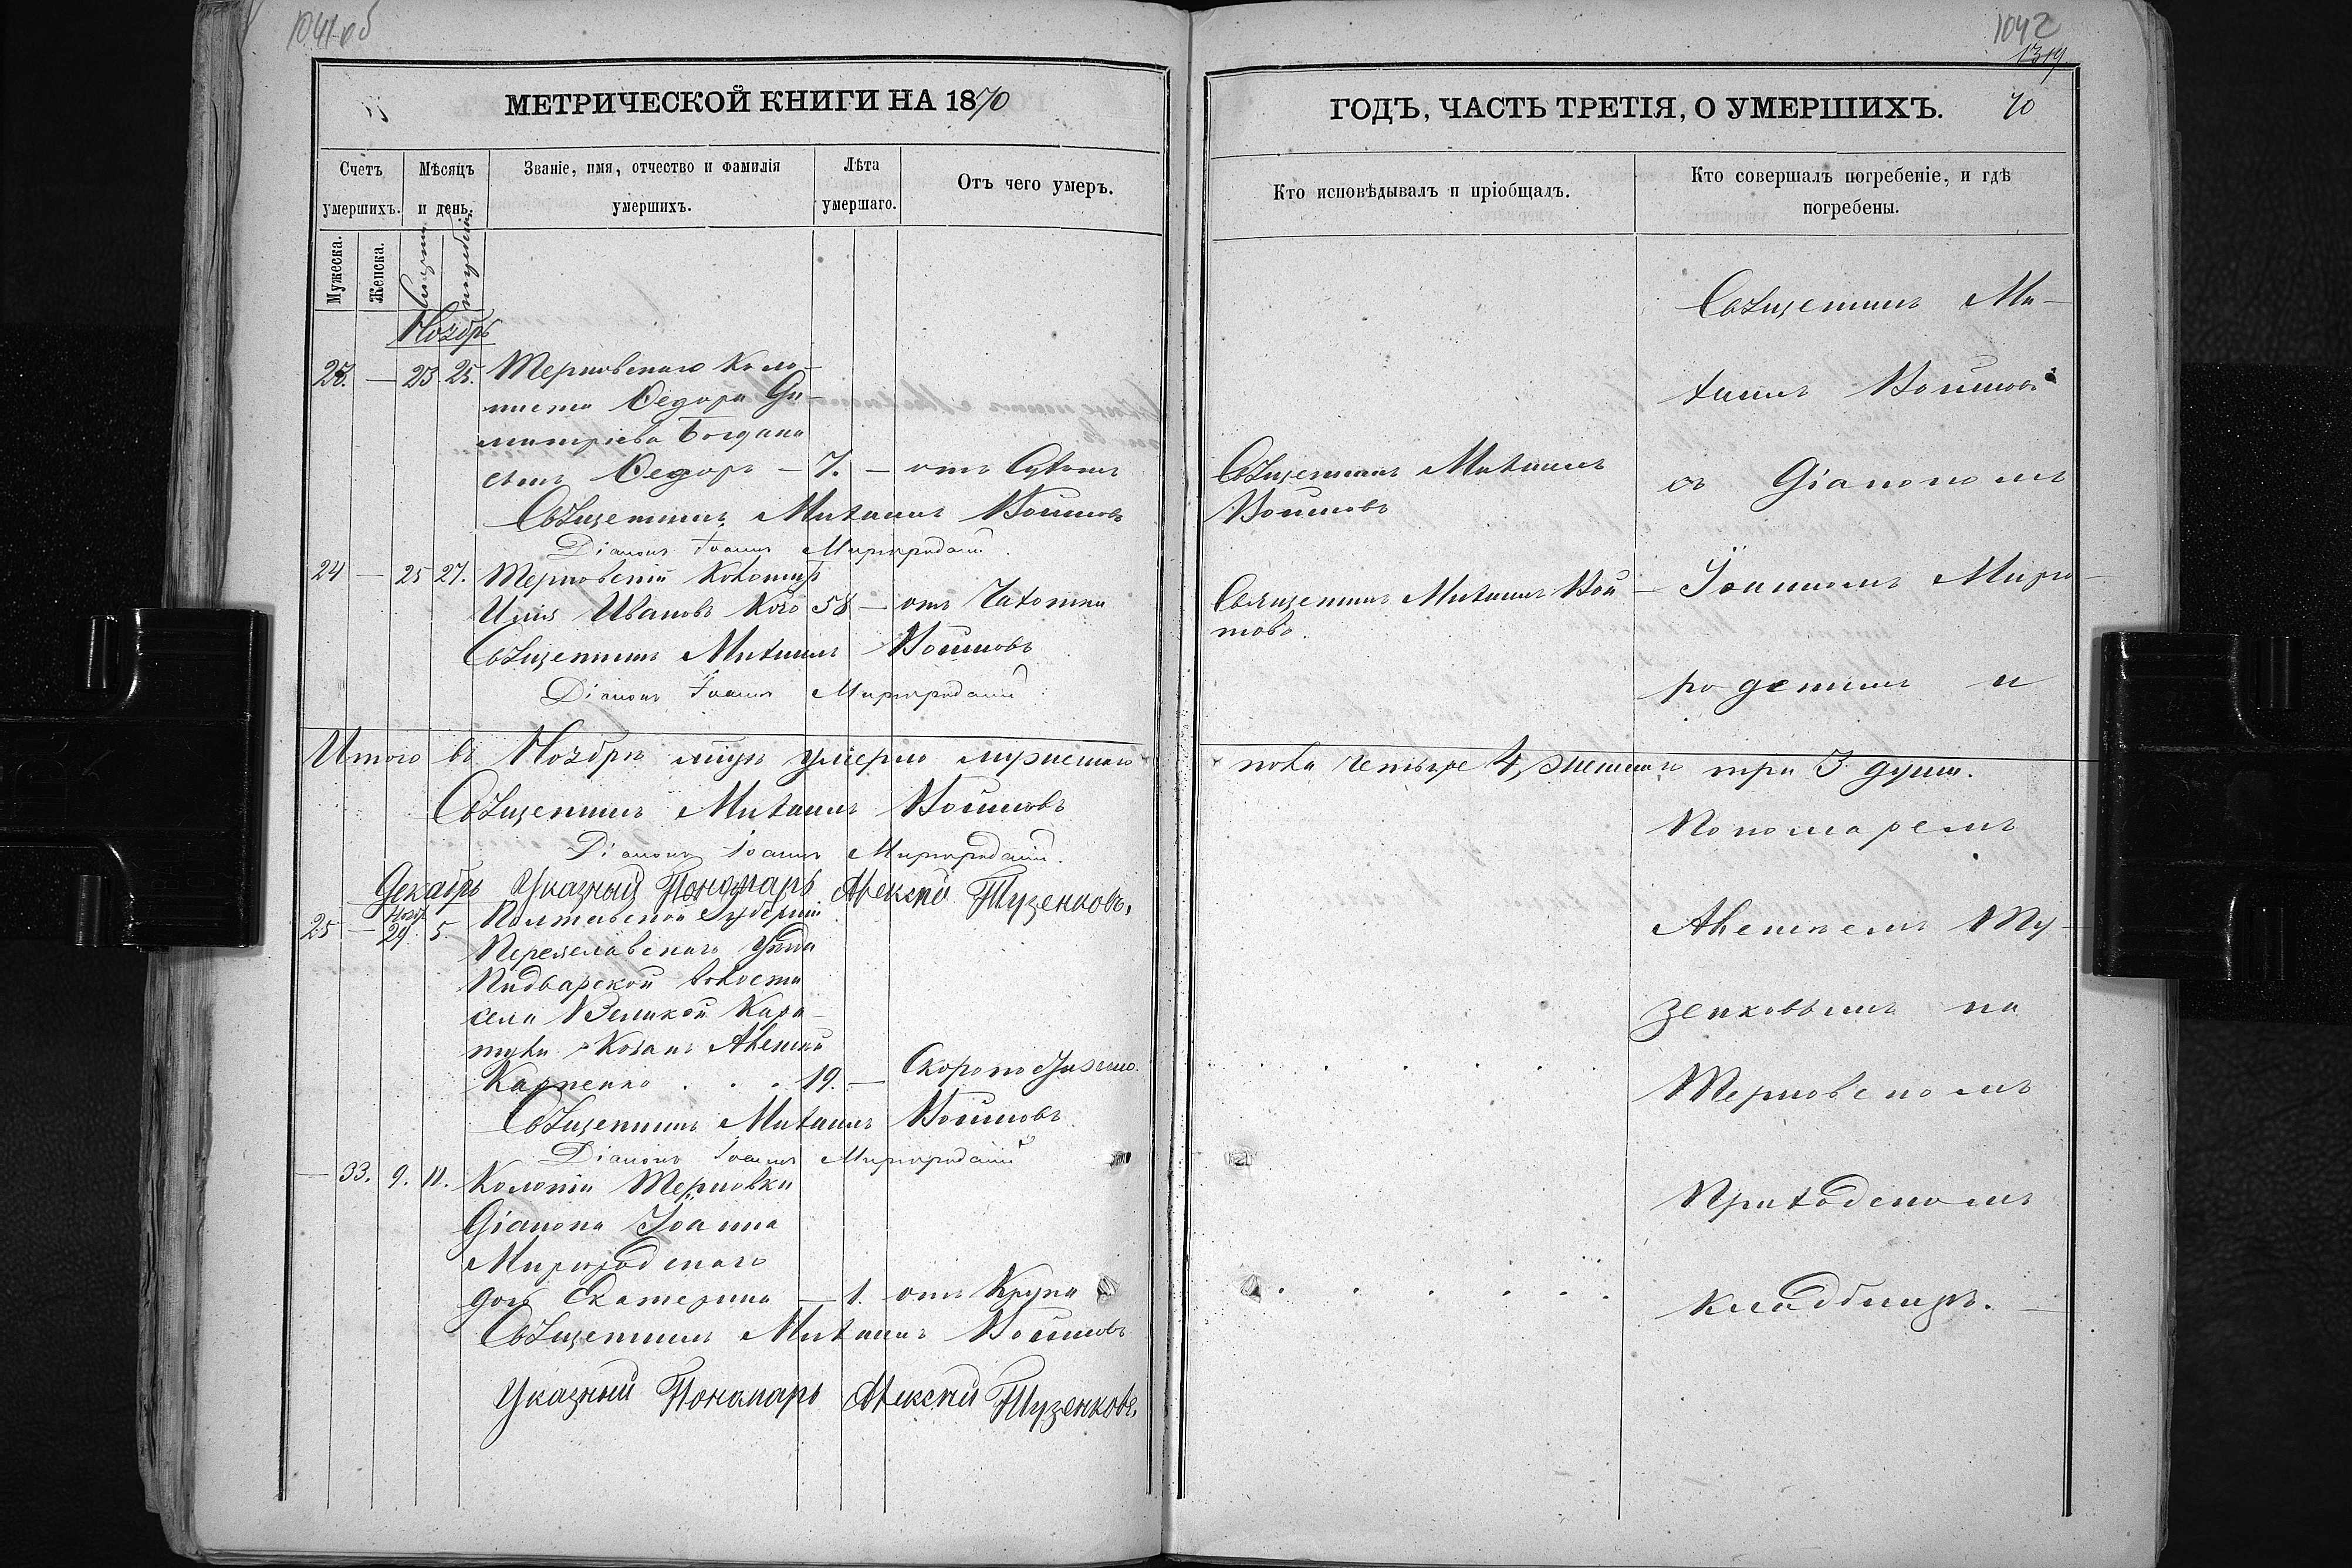 1041 об
МЕТРИЧЕСКОЙ КНИГИ НА 1870
Счетъ умершихъ.
Мѣсяцъ и день.
Званіе, имя, отчество и фамилія умершихъ.
Лѣта умершаго.
Отъ чего умеръ.
Мужеска.
Женска.
Смерти.
погребенія
Ноябрь
23. — 23 25. Терновскаго коло-
ниста Ѳедора Ди-
митріева Богдана
сынъ Ѳедоръ — 7. — отъ Сухотъ
Священникъ Михаилъ Войтовъ
Діаконъ Іоаннъ Миргородскій.
24 — 25 27. Терновскій колонистъ
Илія Ивановъ Кого 58 — отъ Чахотки
Священникъ Михаилъ Войтовъ
Діаконъ Іоаннъ Миргородскій
Итого въ Ноябрѣ м-цѣ умерло мужескаго
Священникъ Михаилъ Войтовъ
Діаконъ Іоаннъ Миргородскій.
Декабрь Указный Пономарь Алексій Тузенковъ,
Нояб. Полтавской Губерніи
25 — 29 5. Переяславскаго уѣзда
Пидварской волости
села Великой Кара-
тули Козакъ Алексѣй
Карпенко . . . 19. — Скоропостижно.
Священникъ Михаилъ Войтовъ
Діаконъ Іоаннъ Миргородскій
— 33. 9. 11. Колоніи Терновки
Діакона Іоанна
Миргородскаго
дочь Екатерина — 1. — отъ Крупа
Священникъ Михаилъ Войтовъ
Указный Пономарь Алексій Тузенковъ,
1042
1319.
ГОДЪ, ЧАСТЬ ТРЕТІЯ, О УМЕРШИХЪ. 70
Кто исповѣдывалъ и пріобщалъ.
Кто совершалъ погребеніе, и гдѣ погребены.
Священникъ Михаилъ
Войтовъ
Священникъ Михаилъ Вой-
товъ.
пола четыре 4, женска три 3 души.
Священникъ Ми-
хаилъ Войтовъ
съ Діакономъ
Іоанномъ Мирго-
родскимъ и
Пономаремъ
Алексѣемъ Ту-
зенковымъ на
Терновскомъ
Приходскомъ
кладбищѣ.